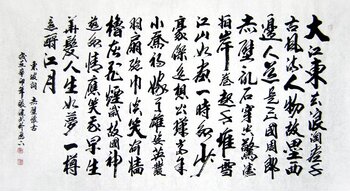 大江東去浪淘盡千
古風流人物故壘西
邊人道是三國周郎
赤壁亂石穿空驚濤
拍岸捲起千堆雪
江山如畫一時多少
豪傑遙想公瑾當年
小喬初嫁了雄姿英發
羽扇綸巾談笑間檣
櫓灰飛煙滅故國神
遊多情應笑我早生
華髮人生如夢一樽
還酹江月
東坡詞 赤壁懷古
辛卯年